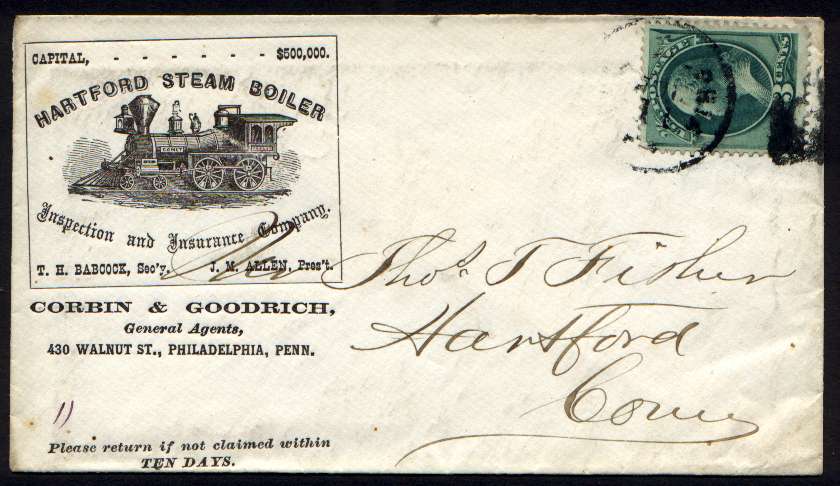 CAPITAL, - - - - - - $500,000.
HARTFORD STEAM BOILER
COMET
Inspection and Insurance Company.
T. H. BABCOCK, Sec'y. J. M. ALLEN, Pres't.
CORBIN & GOODRICH,
General Agents,
430 WALNUT ST., PHILADELPHIA, PENN.
Please return if not claimed within
TEN DAYS.
POSTAGE
CENTS
Thos. T Fisher
Hartford
Conn